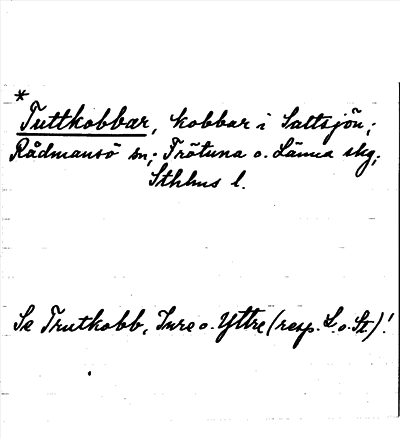 *
Tuttkobbar, kobbar i Saltsjön;
Rådmansö sn; Frötuna o. Länna skg;
Sthlms l.
Se Trutkobb, Inre o. Yttre (resp. L. o. St.)!